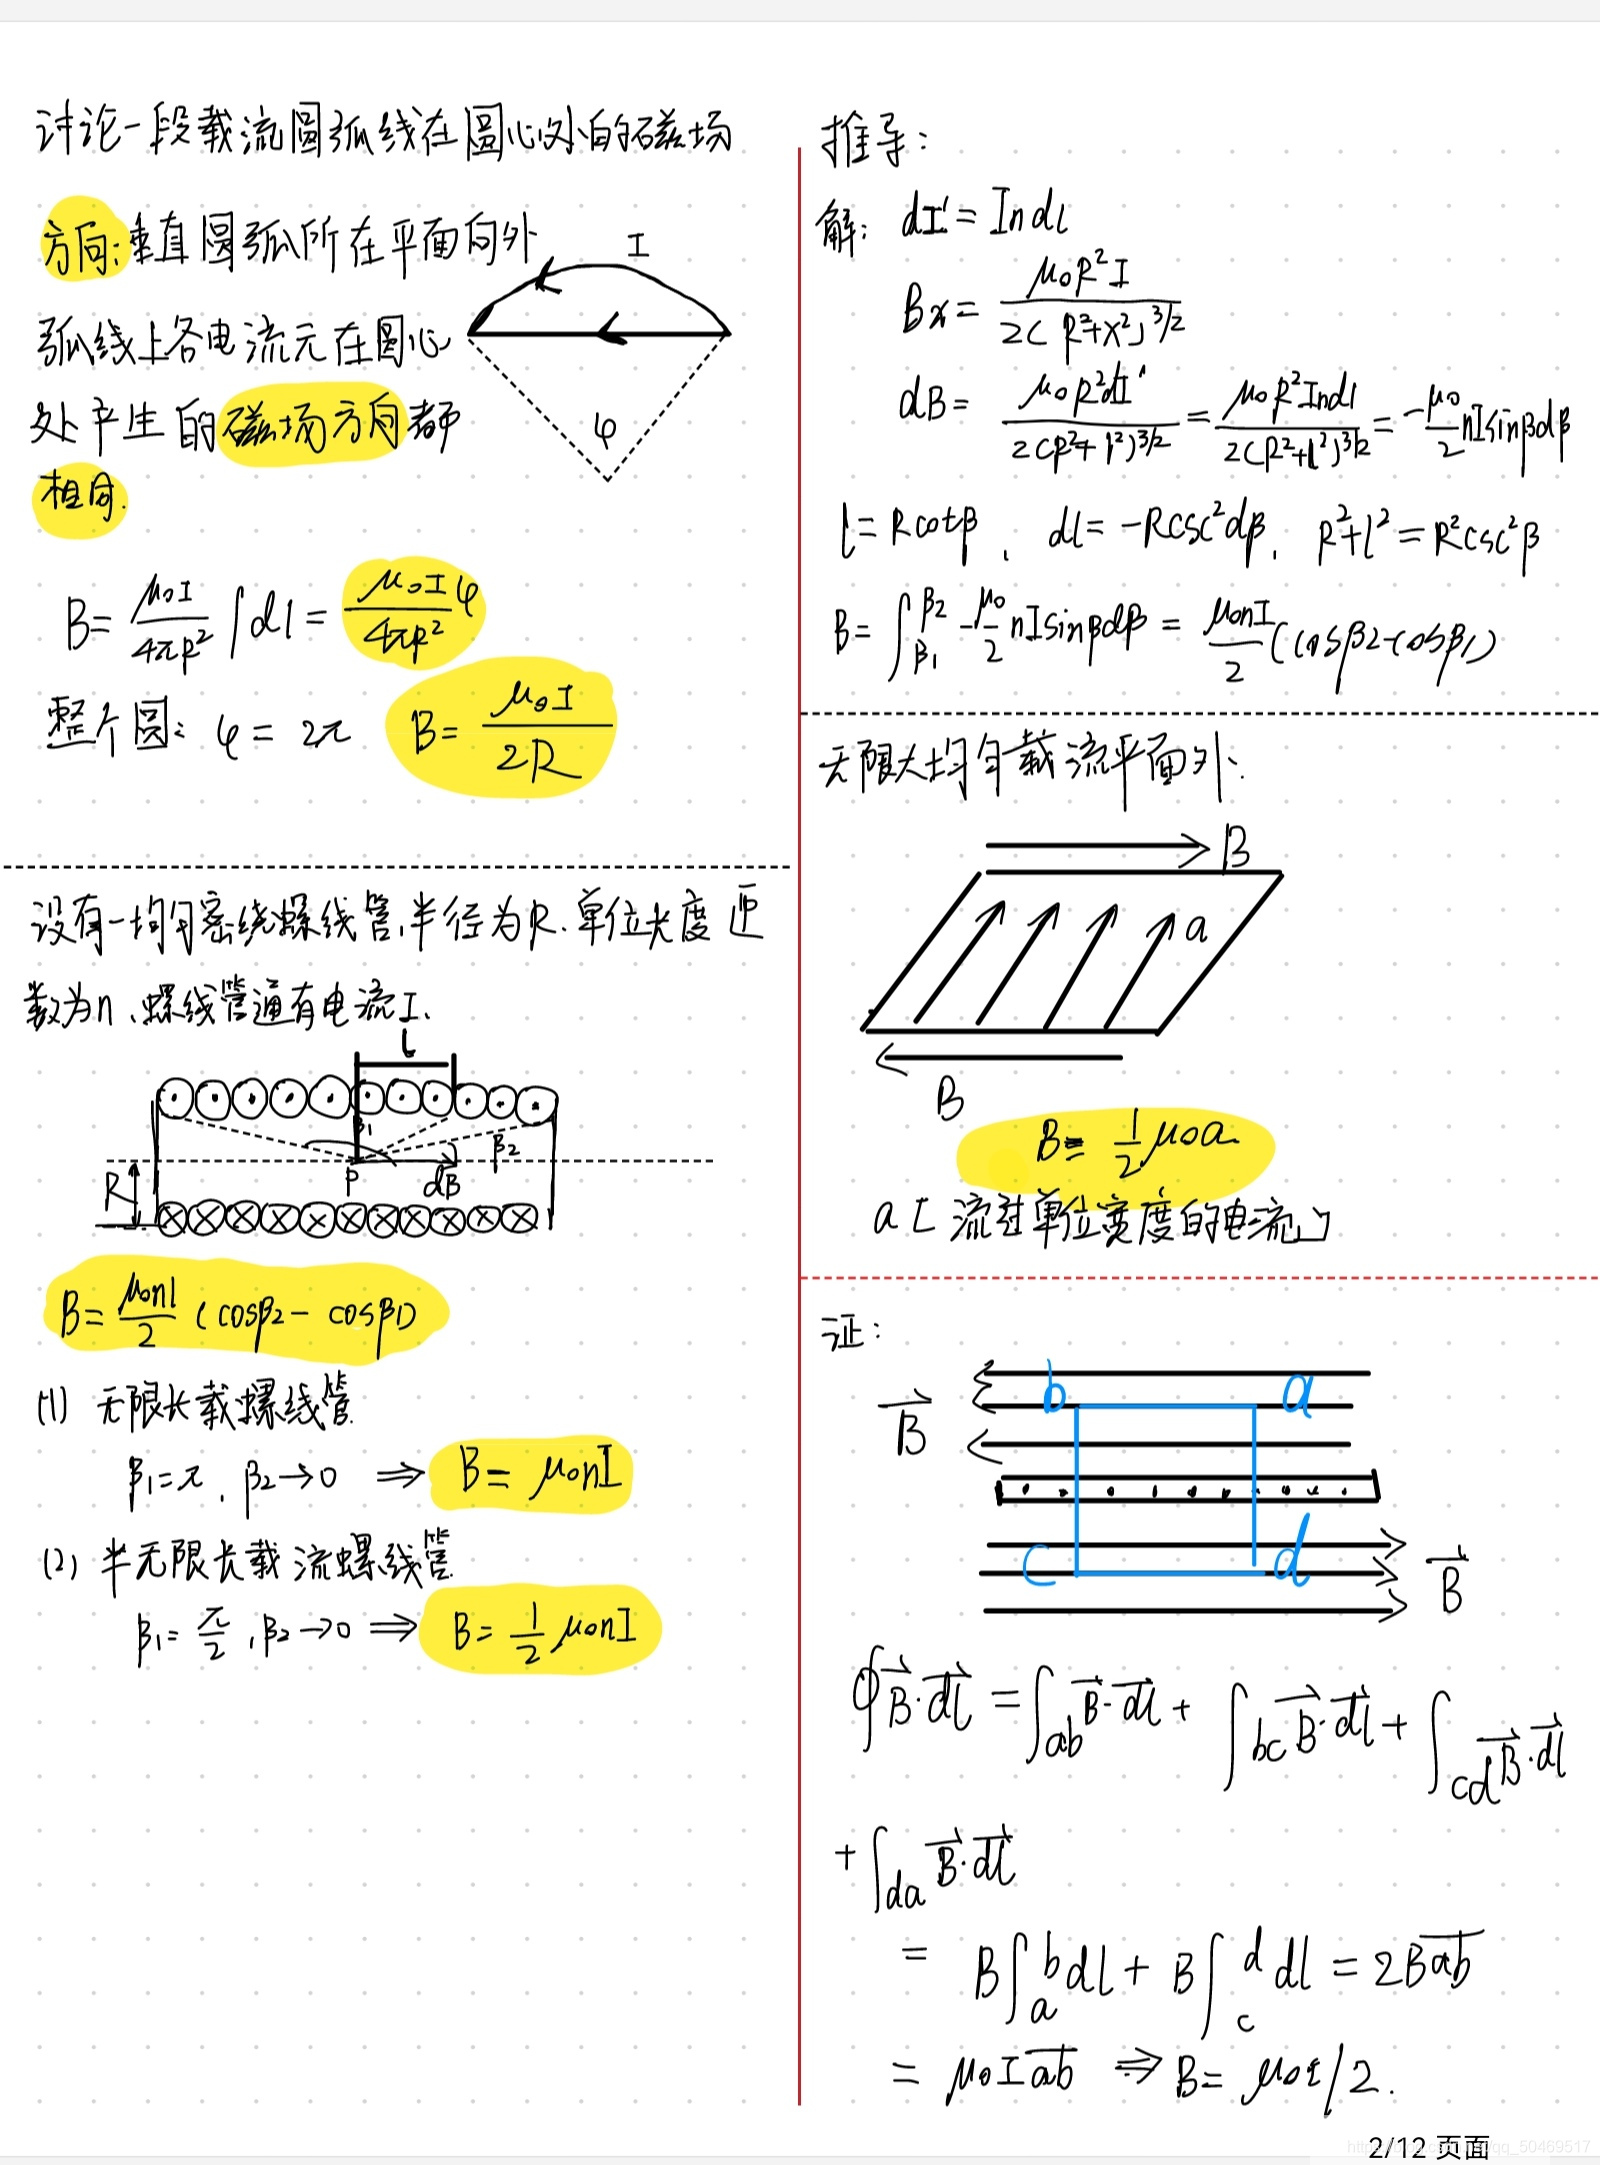 讨论一段载流圆弧线在圆心处的磁场
方向:垂直圆弧所在平面向外
I
弧线上各电流元在圆心
处产生的磁场方向都
相同.
φ
B= μ₀I/4πR² ∫dl = μ₀Iφ/4πR²
整个圆: φ = 2π B= μ₀I/2R
设有一均匀密绕螺线管,半径为R.单位长度匝
数为n、螺线管通有电流I.
l
β₁
β₂
P
dB
R
B= μ₀nI/2 (cosβ₂ - cosβ₁)
(1) 无限长载螺线管
β₁=π, β₂→0 ⇒ B= μ₀nI
(2) 半无限长载流螺线管
β₁= π/2, β₂→0 ⇒ B= 1/2 μ₀nI
推导:
解: dI'= Indl
Bx= μ₀R²I/2(R²+x²)^3/2
dB= μ₀R²dI'/2(R²+l²)^3/2 = μ₀R²Indl/2(R²+l²)^3/2 = -μ₀/2 nIsinβdβ
l= Rcotβ, dl= -Rcsc²dβ, R²+l²=R²csc²β
B= ∫β₁^β₂ -μ₀/2 nIsinβdβ = μ₀nI/2 (cosβ₂-cosβ₁)
无限大均匀载流平面外.
B
a
B
B= 1/2 μ₀a
a [ 流过单位宽度的电流 ]
证:
b a
B⃗
c d
B⃗
∮B⃗·dl⃗ = ∫ab B⃗·dl⃗ + ∫bc B⃗·dl⃗ + ∫cd B⃗·dl⃗
+ ∫da B⃗·dl⃗
= B∫a^b dl + B∫c^d dl = 2Bab̅
= μ₀I ab̅ ⇒ B= μ₀i/2.
2/12 页面